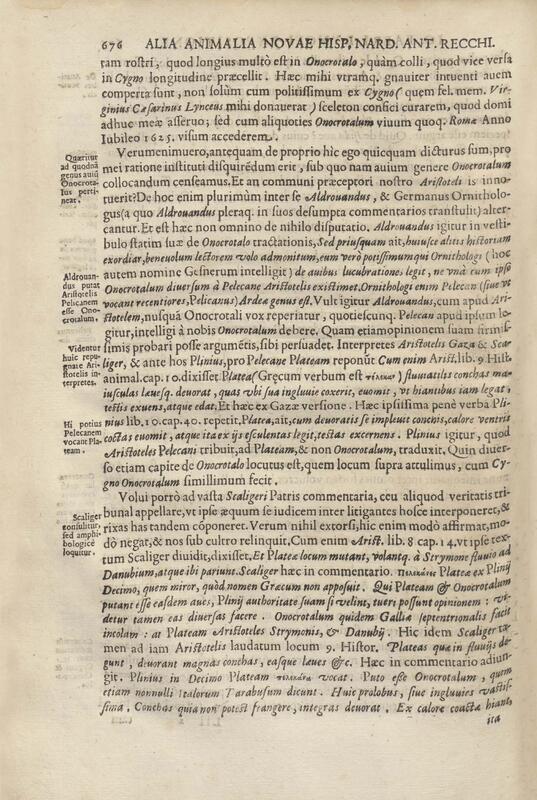 676 ALIA ANIMALIA NOVAE HISP. NARD. ANT. RECCHI.
tam rostri; quod longius multò est in Onocrotalo, quàm colli, quod vice versa
in Cygno longitudine præcellit. Hæc mihi vtramq. gnauiter intuenti auem
comperta sunt, non solùm cum politissimum ex Cygno (quem fel. mem. Vir-
ginius Cæsarinus Lynceus mihi donauerat) sceleton confici curarem, quod domi
adhuc meæ asseruo; sed cum aliquoties Onocrotalum viuum quoq. Romæ Anno
Iubileo 1625. visum accederem.
Quæritur
ad quodnã
genus auiũ
Onocrota-
lus perti-
neat.
Verumenimuero, antequam de proprio hic ego quicquam dicturus sum, pro
mei ratione instituti disquirẽdum erit, sub quo nam auium genere Onocrotalum
collocandum censeamus. Et an communi præceptori nostro Aristoteli is inno-
tuerit? De hoc enim plurimùm inter se Aldrouandus, & Germanus Ornitholo-
gus (a quo Aldrouandus pleraq. in suos desumpta commentarios transtulit) alter-
cantur. Et est hæc non omnino de nihilo disputatio. Aldrouandus igitur in vesti-
bulo statim suæ de Onocrotalo tractationis, Sed priusquam ait, huiusce alitis historiam
exordiar, beneuolum lectorem volo admonitum, eum verò potissimum qui Ornithologi (hoc
autem nomine Gesnerum intelligit) de auibus lucubrationes legit, ne vnà cum ipso
Aldrouan-
dus putat
Aristotelis
Pelicanem
esse Ono-
crotalum.
Onocrotalum diuersum à Pelecane Aristotelis existimet. Ornithologi enim Pelecan (siue vt
vocant recentiores, Pelicanus) Ardeæ genus est. Vult igitur Aldrouandus, cum apud Ari-
stotelem, nusquã Onocrotali vox reperiatur, quotiescunq. Pelecan apud ipsum lo-
gitur, intelligi à nobis Onocrotalum debere. Quam etiam opinionem suam firmis-
simis probari posse argumẽtis, sibi persuadet. Interpretes Aristotelis Gaza & Sca-
Videntur
huic repu-
gnare Ari-
stotelis in-
terpretes.
liger, & ante hos Plinius, pro Pelecane Plateam reponũt Cum enim Arist. lib. 9 Hist.
animal. cap. 10. dixisset. Platea (Gręcum verbum est πελεκὰν) fluuiatilis conchas ma-
iusculas læuesq. deuorat, quas vbi sua ingluuie coxerit, euomit, vt hiantibus iam legat,
testis exuens, atque edat. Et hæc ex Gazæ versione. Hæc ipsissima penè verba Pli-
Hi potius
Pelecanem
vocant Pla-
team.
nius lib. 10. cap. 40. repetit, Platea, ait, cum deuoratis se impleuit conchis, calore ventris
coctas euomit, atque ita ex ijs esculentas legit, testas excernens. Plinius igitur, quod
Aristoteles Pelecani tribuit, ad Plateam, & non Onocrotalum, traduxit. Quin diuer-
so etiam capite de Onocrotalo locutus est, quem locum supra attulimus, cum Cy-
gno Onocrotalum simillimum fecit.
Volui porrò ad vasta Scaligeri Patris commentaria, ceu aliquod veritatis tri-
bunal appellare, vt ipse æquum se iudicem inter litigantes hosce interponeret, &
Scaliger
consulitur,
sed amphi-
bologicè
loquitur.
rixas has tandem cõponeret. Verum nihil extorsi; hic enim modò affirmat, mo-
dò negat, & nos sub cultro relinquit. Cum enim Arist. lib. 8 cap. 14. vt ipse tex-
tum Scaliger diuidit, dixisset. Et Plateæ locum mutant, volantq. à Strymone fluuio ad
Danubium, atque ibi pariunt. Scaliger hæc in commentario. πελεκᾶνες Plateæ ex Plinij
Decimo, quem miror, quòd nomen Græcum non apposuit. Qui Plateam & Onocrotalum
putant esse easdem aues, Plinij authoritate suam si velint, tueri possunt opinionem: vi-
detur tamen eas diuersas facere. Onocrotalum quidem Galliæ septentrionalis facit
incolam: at Plateam Aristoteles Strymonis, & Danubij. Hic idem Scaliger ta-
men ad iam Aristotelis laudatum locum 9. Histor. Plateas quæ in fluuijs de-
gunt, deuorant magnas conchas, easque læues &c. Hæc in commentario adiun-
git. Plinius in Decimo Plateam πελεκᾶνα vocat. Puto esse Onocrotalum, quem
etiam nonnulli Italorum Tarabusum dicunt. Huic prolobus, siue ingluuies vastis-
sima. Conchas quia non potest frangere, integras deuorat. Ex calore coactæ hiant,
ita